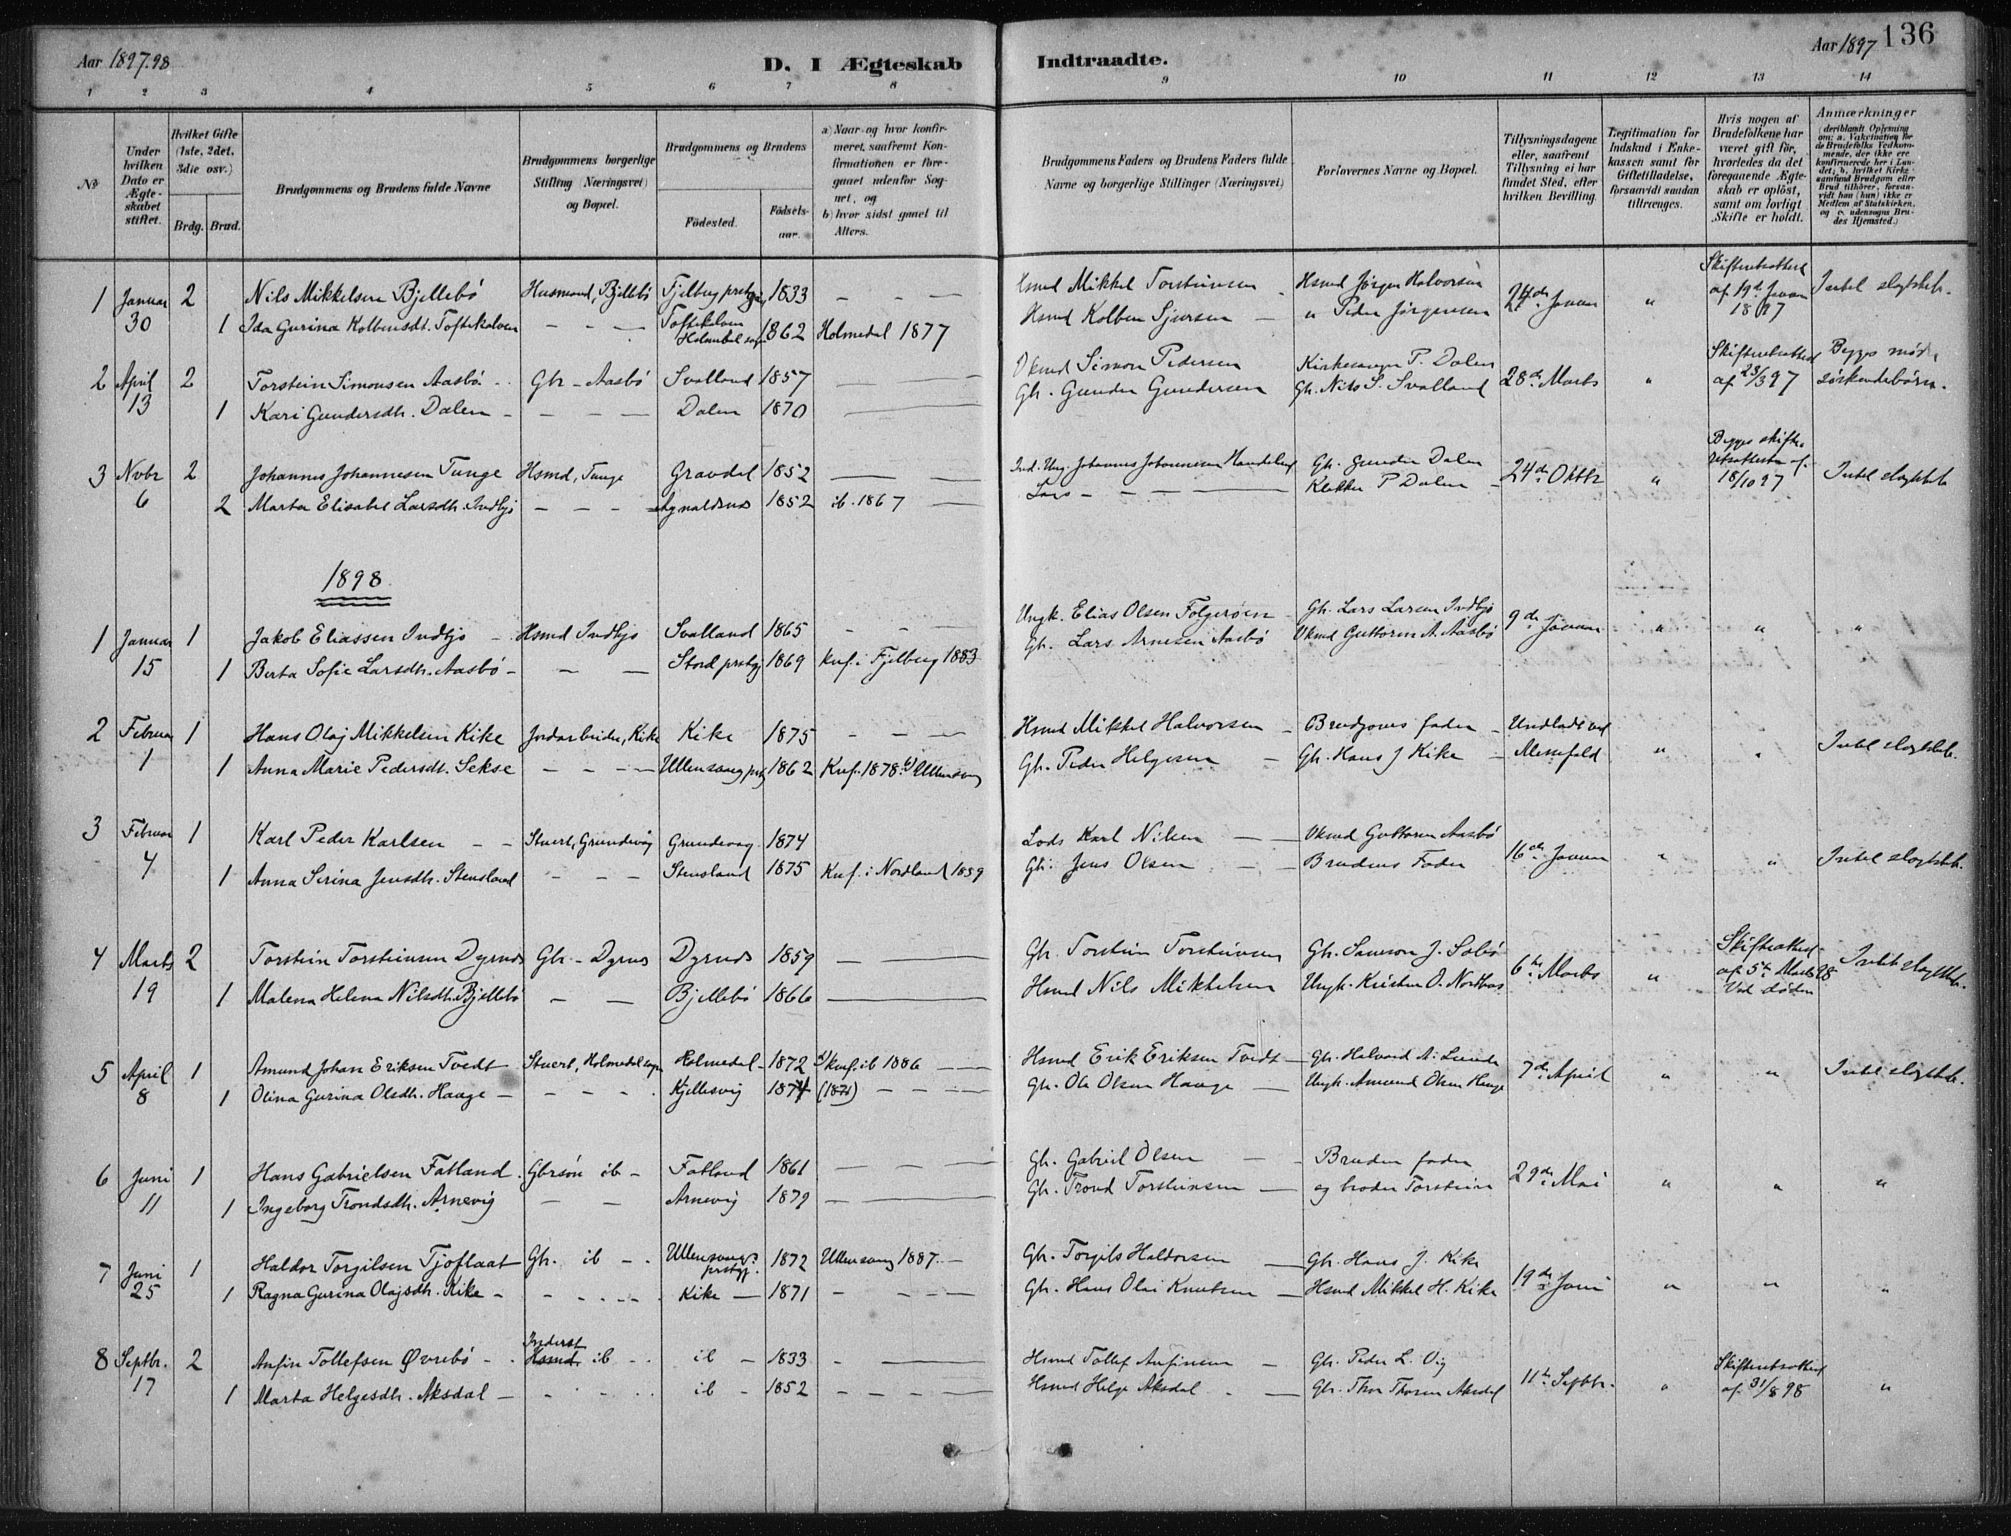 Aar 1897.98
D. I Ægteskab Indtraadte.
Aar 1897 136
1 2 3 4 5 6 7 8 9 10 11 12 13 14
No
Under hvilken Dato er Ægteskabet stiftet.
Hvilket Gifte (1ste, 2det, 3die osv.)
Brdg. Brud.
Brudgommens og Brudens fulde Navne
Brudgommens borgerlige Stilling (Næringsvei) og Bopæl.
Brudgommens og Brudens
Fødested.
Fødselsaar.
a) Naar og hvor konfirmeret, saafremt Konfirmationen er foregaaet udenfor Sognet, og
b) hvor sidst gaaet til Alters.
Brudgommens Faders og Brudens Faders fulde Navne og borgerlige Stillinger (Næringsvei)
Forlovernes Navne og Bopæl.
Tillysningsdagene eller, saafremt Tillysning ei har fundet Sted, efter hvilken Bevilling.
Legitimation for Indskud i Enkekassen samt for Giftetilladelse, forsaavidt saadan tiltrænges.
Hvis nogen af Brudefolkene har været gift før, hvorledes da det foregaaende Ægteskab er opløst, samt om lovligt Skifte er holdt.
Anmærkninger (deriblandt Oplysning om: a. Vakcination for de Brudefolks Vedkommende, der ikke ere konfirmerede her i Landet; b. hvilket Kirkesamfund Brudgom eller Brud tilhører, forsaavidt han (hun) ikke er Medlem af Statskirken, og c. udensogns Brudes Hjemsted.)
1 Januar 2 Nils Mikkelsen Bjellebö Husmand, Bjellebö Fjelberg prstgj 1833 — — — Hsmd Mikkel Torsteinsen Hsmd Jørgen Halvorsen 24de Januar " Skifteretsattest af 19de Januar 1897 Intet slegtsk.
30 1 Ida Gurina Kolbensdt. Toftekalven — — — Toftekalven Holmedal sogn 1862 Holmedal 1877 Hsmd Kolben Sjursen — " Peder Jørgensen
2 April 2 Torstein Simonsen Aasbö Gbr - Aasbö Svalland 1857 — — Vkmd Simon Pedersen Kirkesanger P. Dalen 28de Marts " Skifteretsattest af 23/3 97 Begges mødre söskendebörn.
13 1 Kari Gundersdt. Dalen — — — Dalen 1870 — — Gb. Gunder Gundersen Gb. Nils S. Svalland
3 Novbr 2 Johannes Johannesen Tunge Hsmd, Tunge Gravdal 1852 — — Ind. Ung. Johannes Johannesen Gb. Gunder Dalen 24de Oktbr " Begges skifteretsattester af 18/10 97 Intet slegtsk
6 2 Marta Elisabet Larsdt. Indbjo — — — Agnaldsnes 1852 ib. 1867 — Lars — — — Klokker P Dalen
1898
1 Januar 1 Jakob Eliassen Indbjo — Hsmd Indbjo Svalland 1865 — — Ungk. Elias Olsen Folgerøen Gb. Lars Larsen Indbjo 9de Januar " " "
15 1 Berta Sofie Larsdt. Aasbö — — — Stord prstgj 1869 Knf. i Fjelberg 1883 Gb. Lars Arnesen Aasbö Vkmd Guttorm A. Aasbö
2 Februar 1 Hans Olaj Mikkelsen Kike Jordarbeider, Kike Kike 1875 — — — Hsmd Mikkel Halvorsen — Brudgoms fader — Undladt ved Messefald " " Intet slegtsk.
1 1 Anna Marie Pedersdt. Sekse — — — Ullensvang prstg 1862 Knf. 1878 i Ullensvang Gb. Peder Helgesen — Gb. Hans J Kike —
3 Februar 1 Karl Peder Karlsen — — Stuert, Grundevåg Grundevag 1874 Lods Karl Nilsen — Vkmd Guttorm Aasbö 16de Januar " " Intet slegtsk.
4 1 Anna Serina Jensdt. Stensland — — — Stensland 1875 Knf. i Nordland 1889 Gb. Jens Olsen — Brudens Fader
4 Marts 2 Torstein Torsteinsen Dyrnes Gb. - Dyrnes Dyrnes 1859 — — Gb. Torstein Torsteinsen Gb. Samson J. Solbö 6te Marts " Skifteattest af 5te Marts 98 Ved döden Intet slegtsk.
19 1 Malena Helena Nilsdt. Bjellebö — — Bjellebö 1866 — Hsmd Nils Mikkelsen Ungk. Kristen O. Nordhus
5 April 1 Amund Johan Eriksen Tvedt Stuert, Holmedal sogn Holmedal 1872 a) Knf. ib 1886 — — Hsmd Erik Eriksen Tvedt — Gb. Halvard A. Lunde 7de April " " Intet slegtsk.
8 1 Olina Gurina Olsdt. Hauge — — — — Kjellesvig 1874 — — — Gb. Ole Olsen Hauge — Ungk. Amund Olsen Hauge
6 Juni 1 Hans Gabrielsen Fatland Gbrsön ib — Fatland 1861 — — — Gb. Gabriel Olsen — — Bruden fader 29de Mai " " "
11 1 Ingeborg Trondsdt. Arnevig — — Arnevig 1879 — — Gb. Trond Torsteinsen — og broder Torstein
7 Juni 1 Haldor Torgilsen Tjoflaat Gb. ib — Ullensvangs prstgj. 1872 Ullensvang 1887 — Gb. Torgils Haldorsen — Gb. Hans J. Kike 19de Juni " " "
25 1 Ragna Gurina Olajsdt. Kike — — — — Kike — 1871 — — — — Gb. Hans Olai Knutsen — Hsmd Mikkel H. Kike
8 Septbr. 2 Anfin Tollefsen Øvrebö — Inderst Hsmd. ib — ib — 1833 — — Hsmd Tollef Anfinsen — Gb. Peder L. Vig 11te Septbr. " Skifteretsattest af 31/8 98 "
17 1 Marta Helgesdt. Aksdal — — — ib — 1852 — — — — Hsmd Helge Aksdal — Gb. Thor Thorsen Aksdal